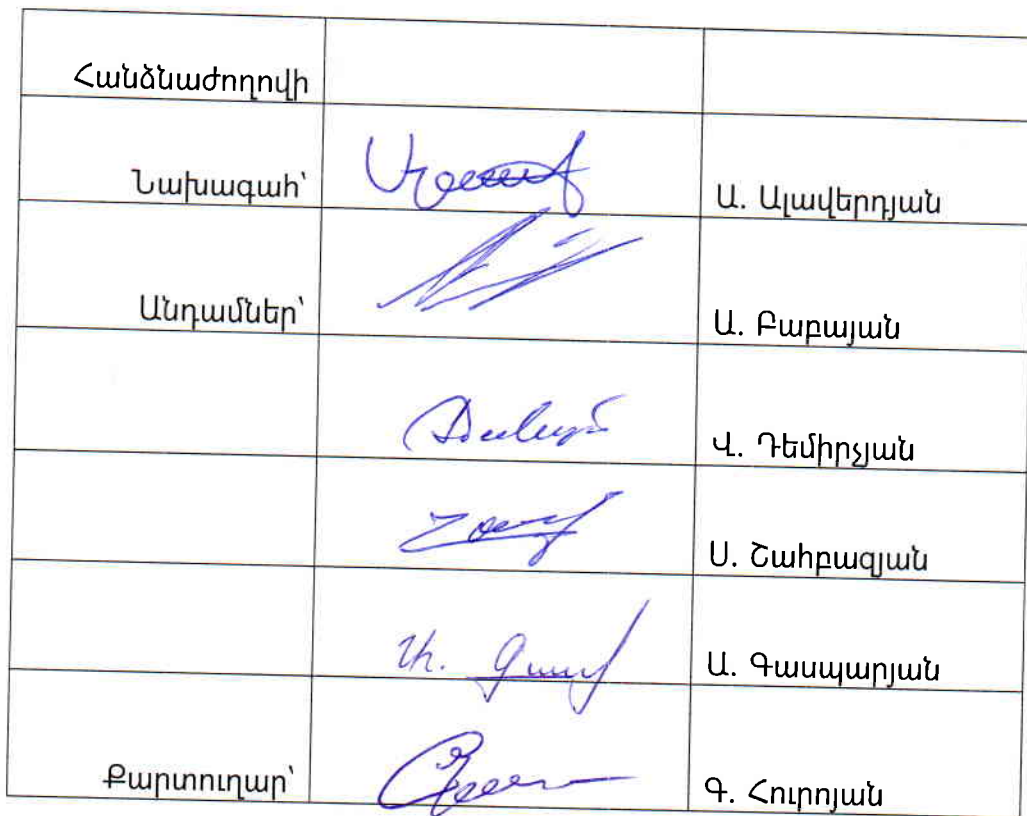 Հանձնաժողովի
Նախագահ՝ Ա. Ալավերդյան
Անդամներ՝ Ա. Բաբայան
Վ. Դեմիրչյան
Ս. Շահբազյան
Ա. Գասպարյան
Քարտուղար՝ Գ. Հուրոյան